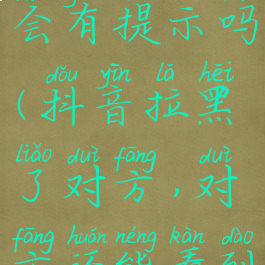 会有提示吗
dǒu yīn lā hēi
(抖音拉黑
liǎo duì fāng duì
了对方,对
fāng huán néng kàn dào
方还能看到